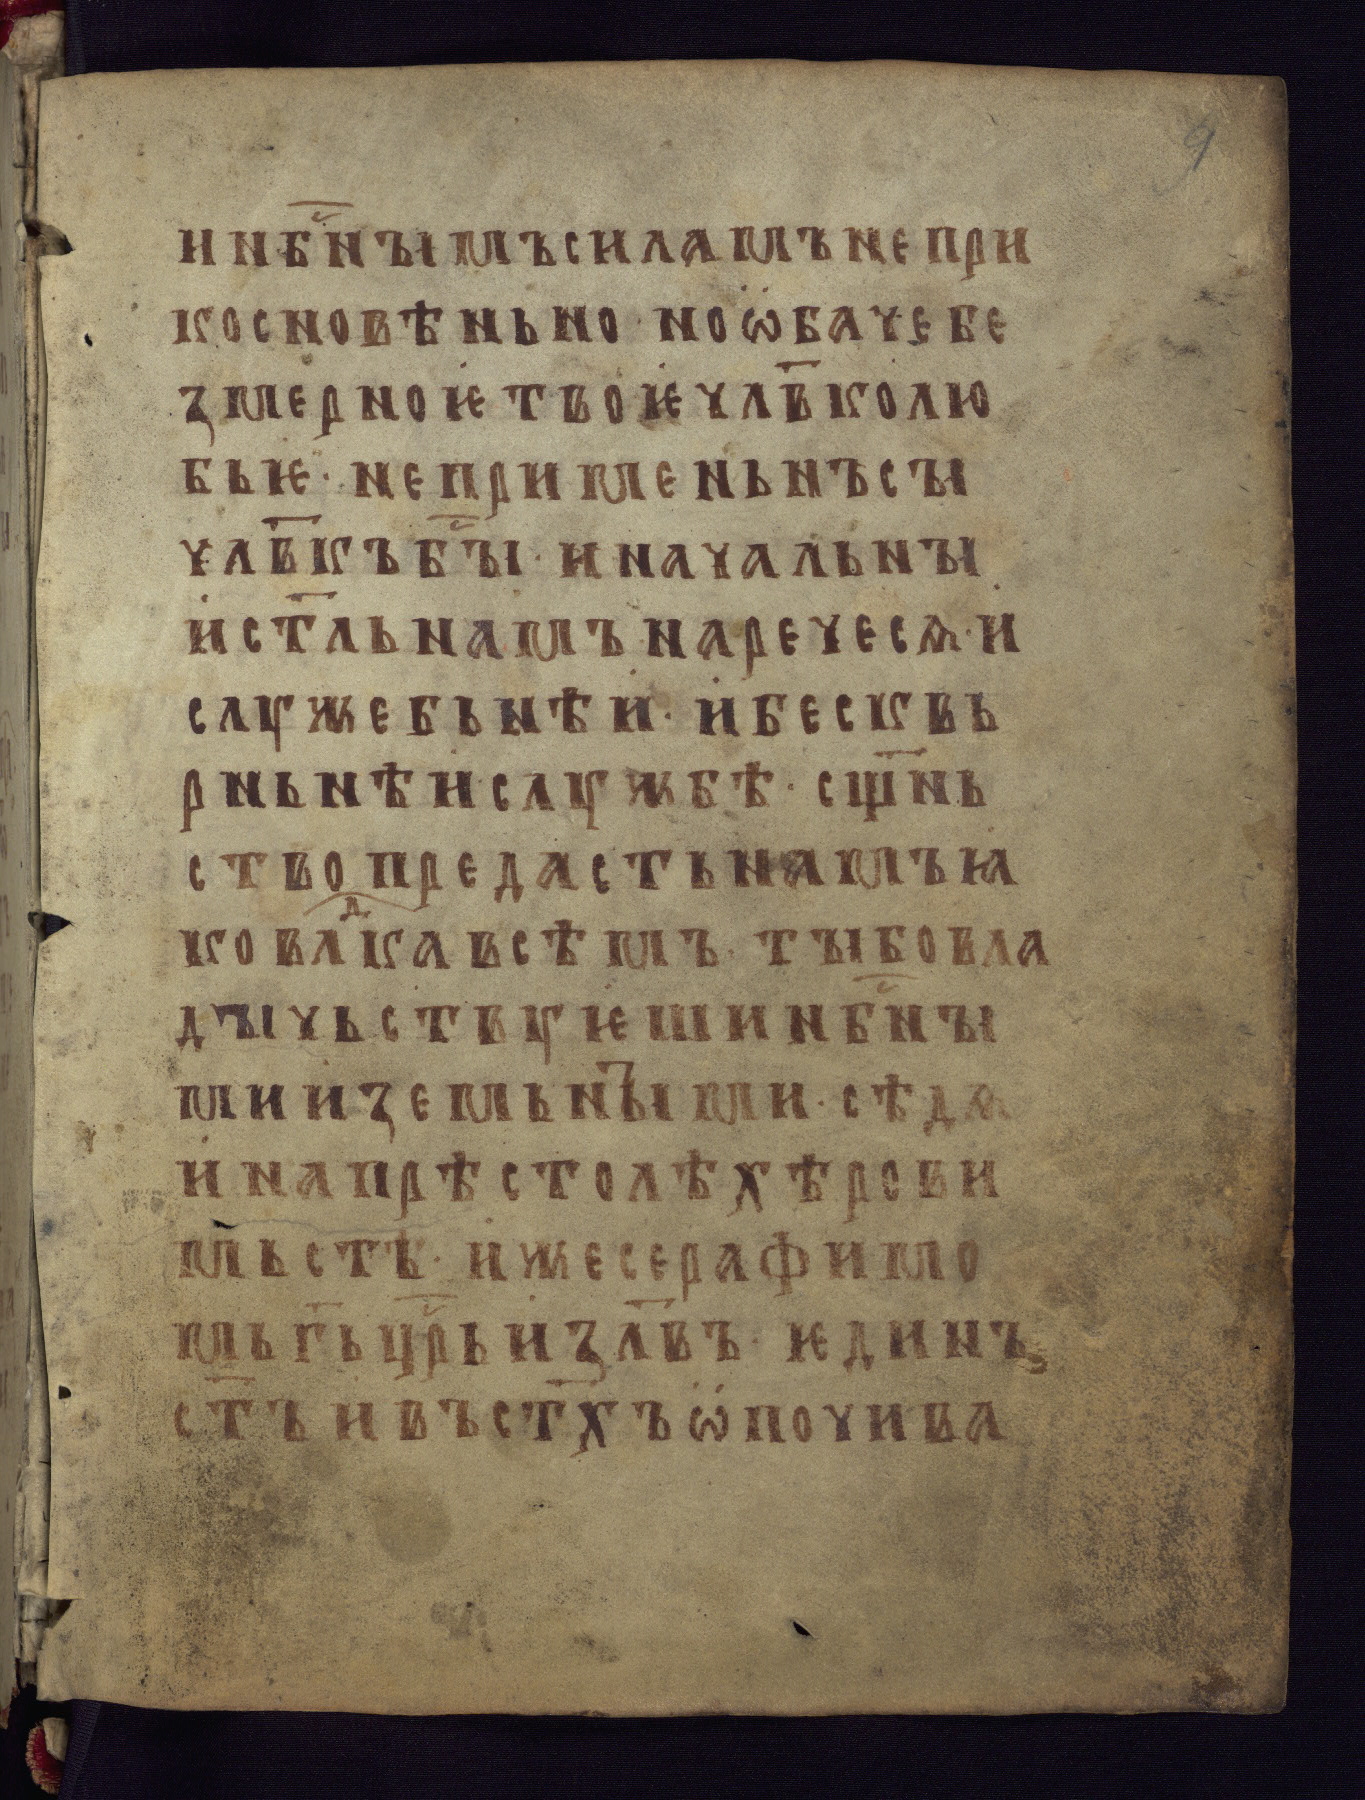 9
и нб҃нꙑмъ силамъ не при
косновѣньно · но ѡбаче бе
змерноѥ твоѥ члв҃колю
бьѥ · непримѣньнъ сꙑ
члв҃къ бꙑ҃ · и начальнꙑ
и ст҃ль намъ нарече сѧ · и
слꙋжебьнѣи · и бесквь
рньнѣи слꙋжбѣ · сщ҃нь
ство предасть намъ ꙗ
ко влⷣка всѣмъ · тꙑ бо вла
дꙑчьствꙋѥши нб҃нꙑ
ми и земьнꙑми · сѣдѧ
и на прѣстолѣ хѣрови
мьстѣ · иже серафимо
мь г҃ь цр҃ь из҃лвъ · ѥдинъ
ст҃ъ и въ ст҃хъ ѡпочива